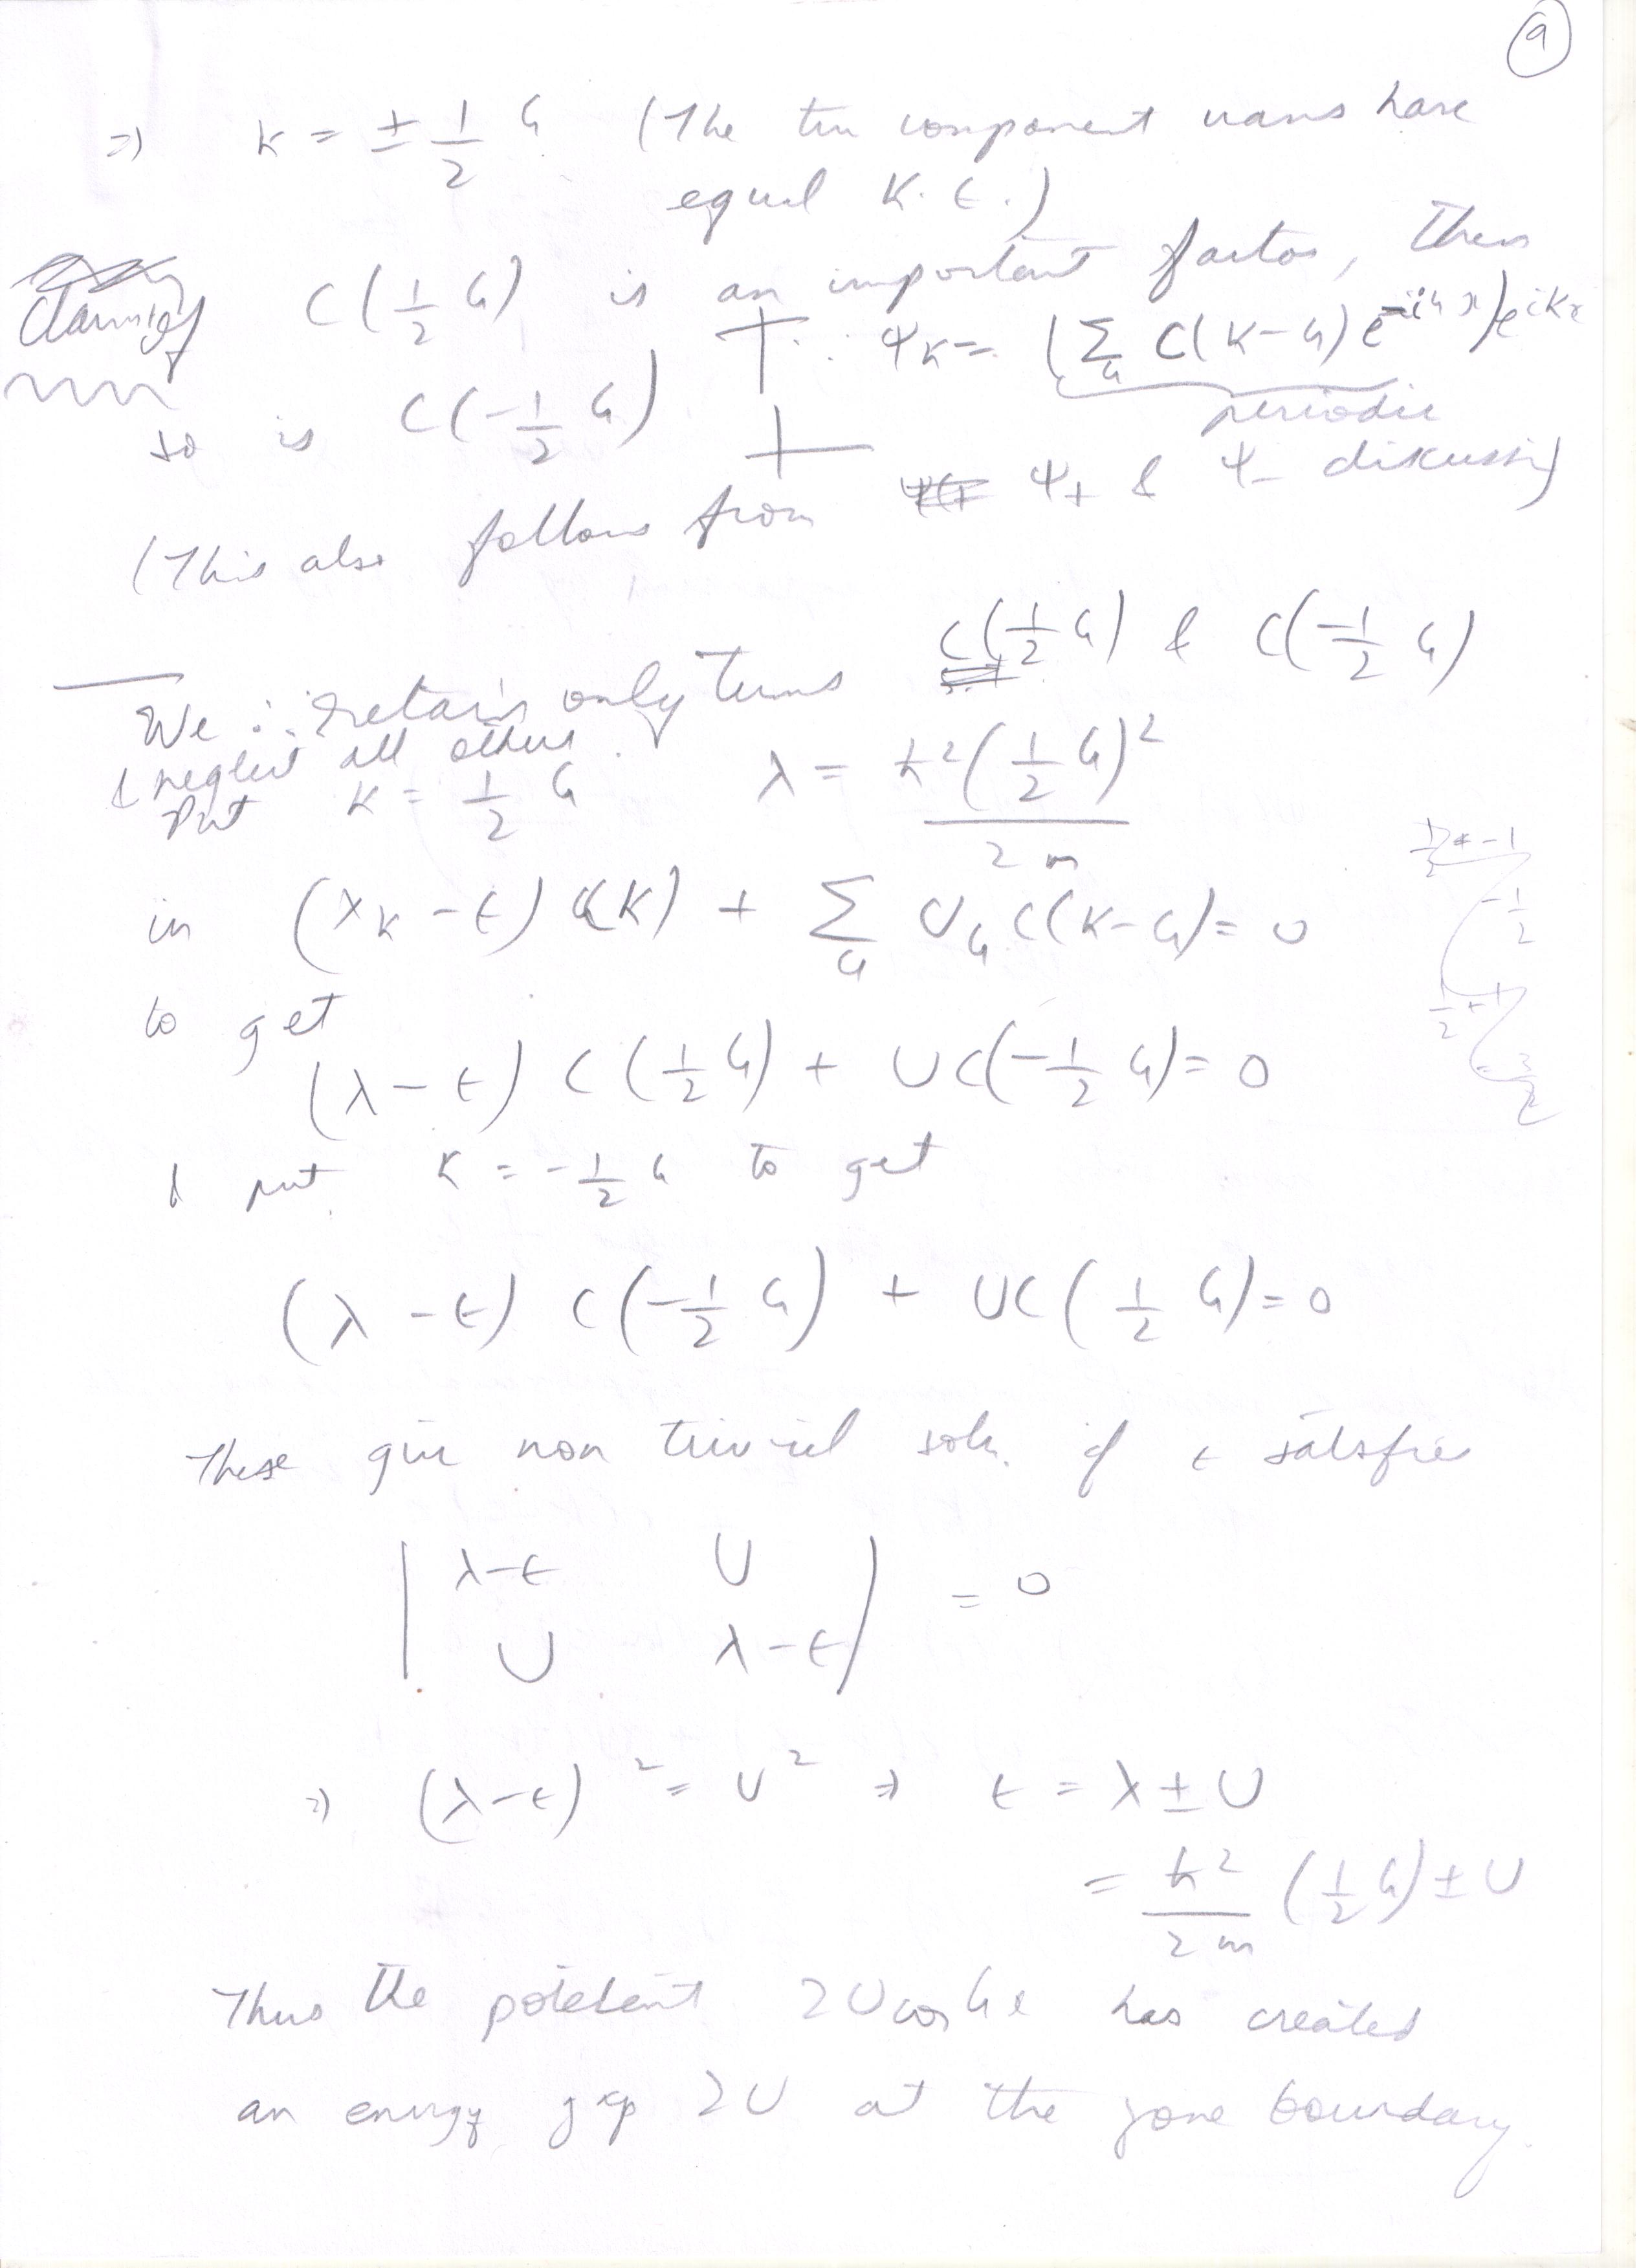 9
⇒ K = ± 1/2 G (The two component waves have
equal K.E.)
Clarify C(1/2 G) is an important factor, then
so is C(-1/2 G) ∵ ψK = (∑G C(K-G) e^-iGx) e^iKx
periodic
(This also follows from ψ+ & ψ- discussion)
We ∴ retain only terms C(1/2 G) & C(-1/2 G)
& neglect all others.
Put K = 1/2 G λ = ħ²(1/2 G)² / 2m
in (λK - ε) C(K) + ∑G UG C(K-G) = 0
1/2 - 1
-1/2
1/2 + 1
3/2
to get
(λ - ε) C(1/2 G) + UC(-1/2 G) = 0
& put K = -1/2 G to get
(λ - ε) C(-1/2 G) + UC(1/2 G) = 0
These give non trivial soln. if ε satisfies
| λ-ε U |
| U λ-ε | = 0
⇒ (λ-ε)² = U² ⇒ ε = λ ± U
= ħ²/2m (1/2 G) ± U
Thus the potential 2U cos Gx has created
an energy gap 2U at the zone boundary.